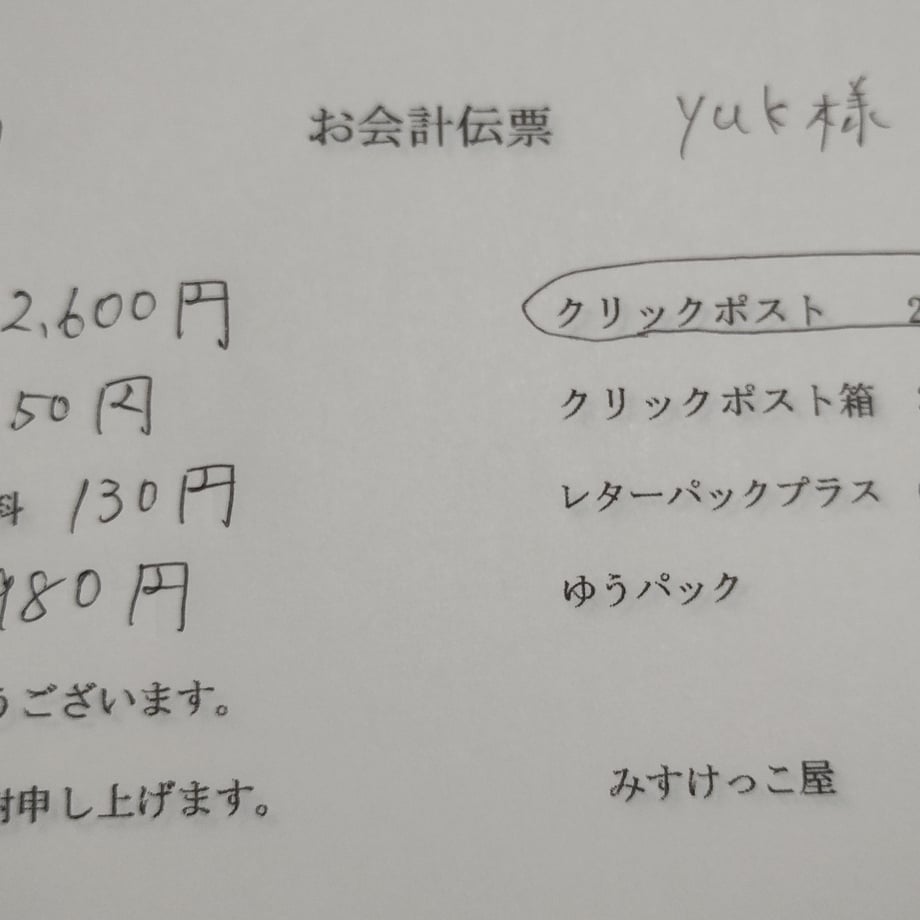 お会計伝票 yuk様
2,600円
クリックポスト 2
50円
クリックポスト箱
料 130円
レターパックプラス
980円
ゆうパック
うございます。
申し上げます。
みすけっこ屋